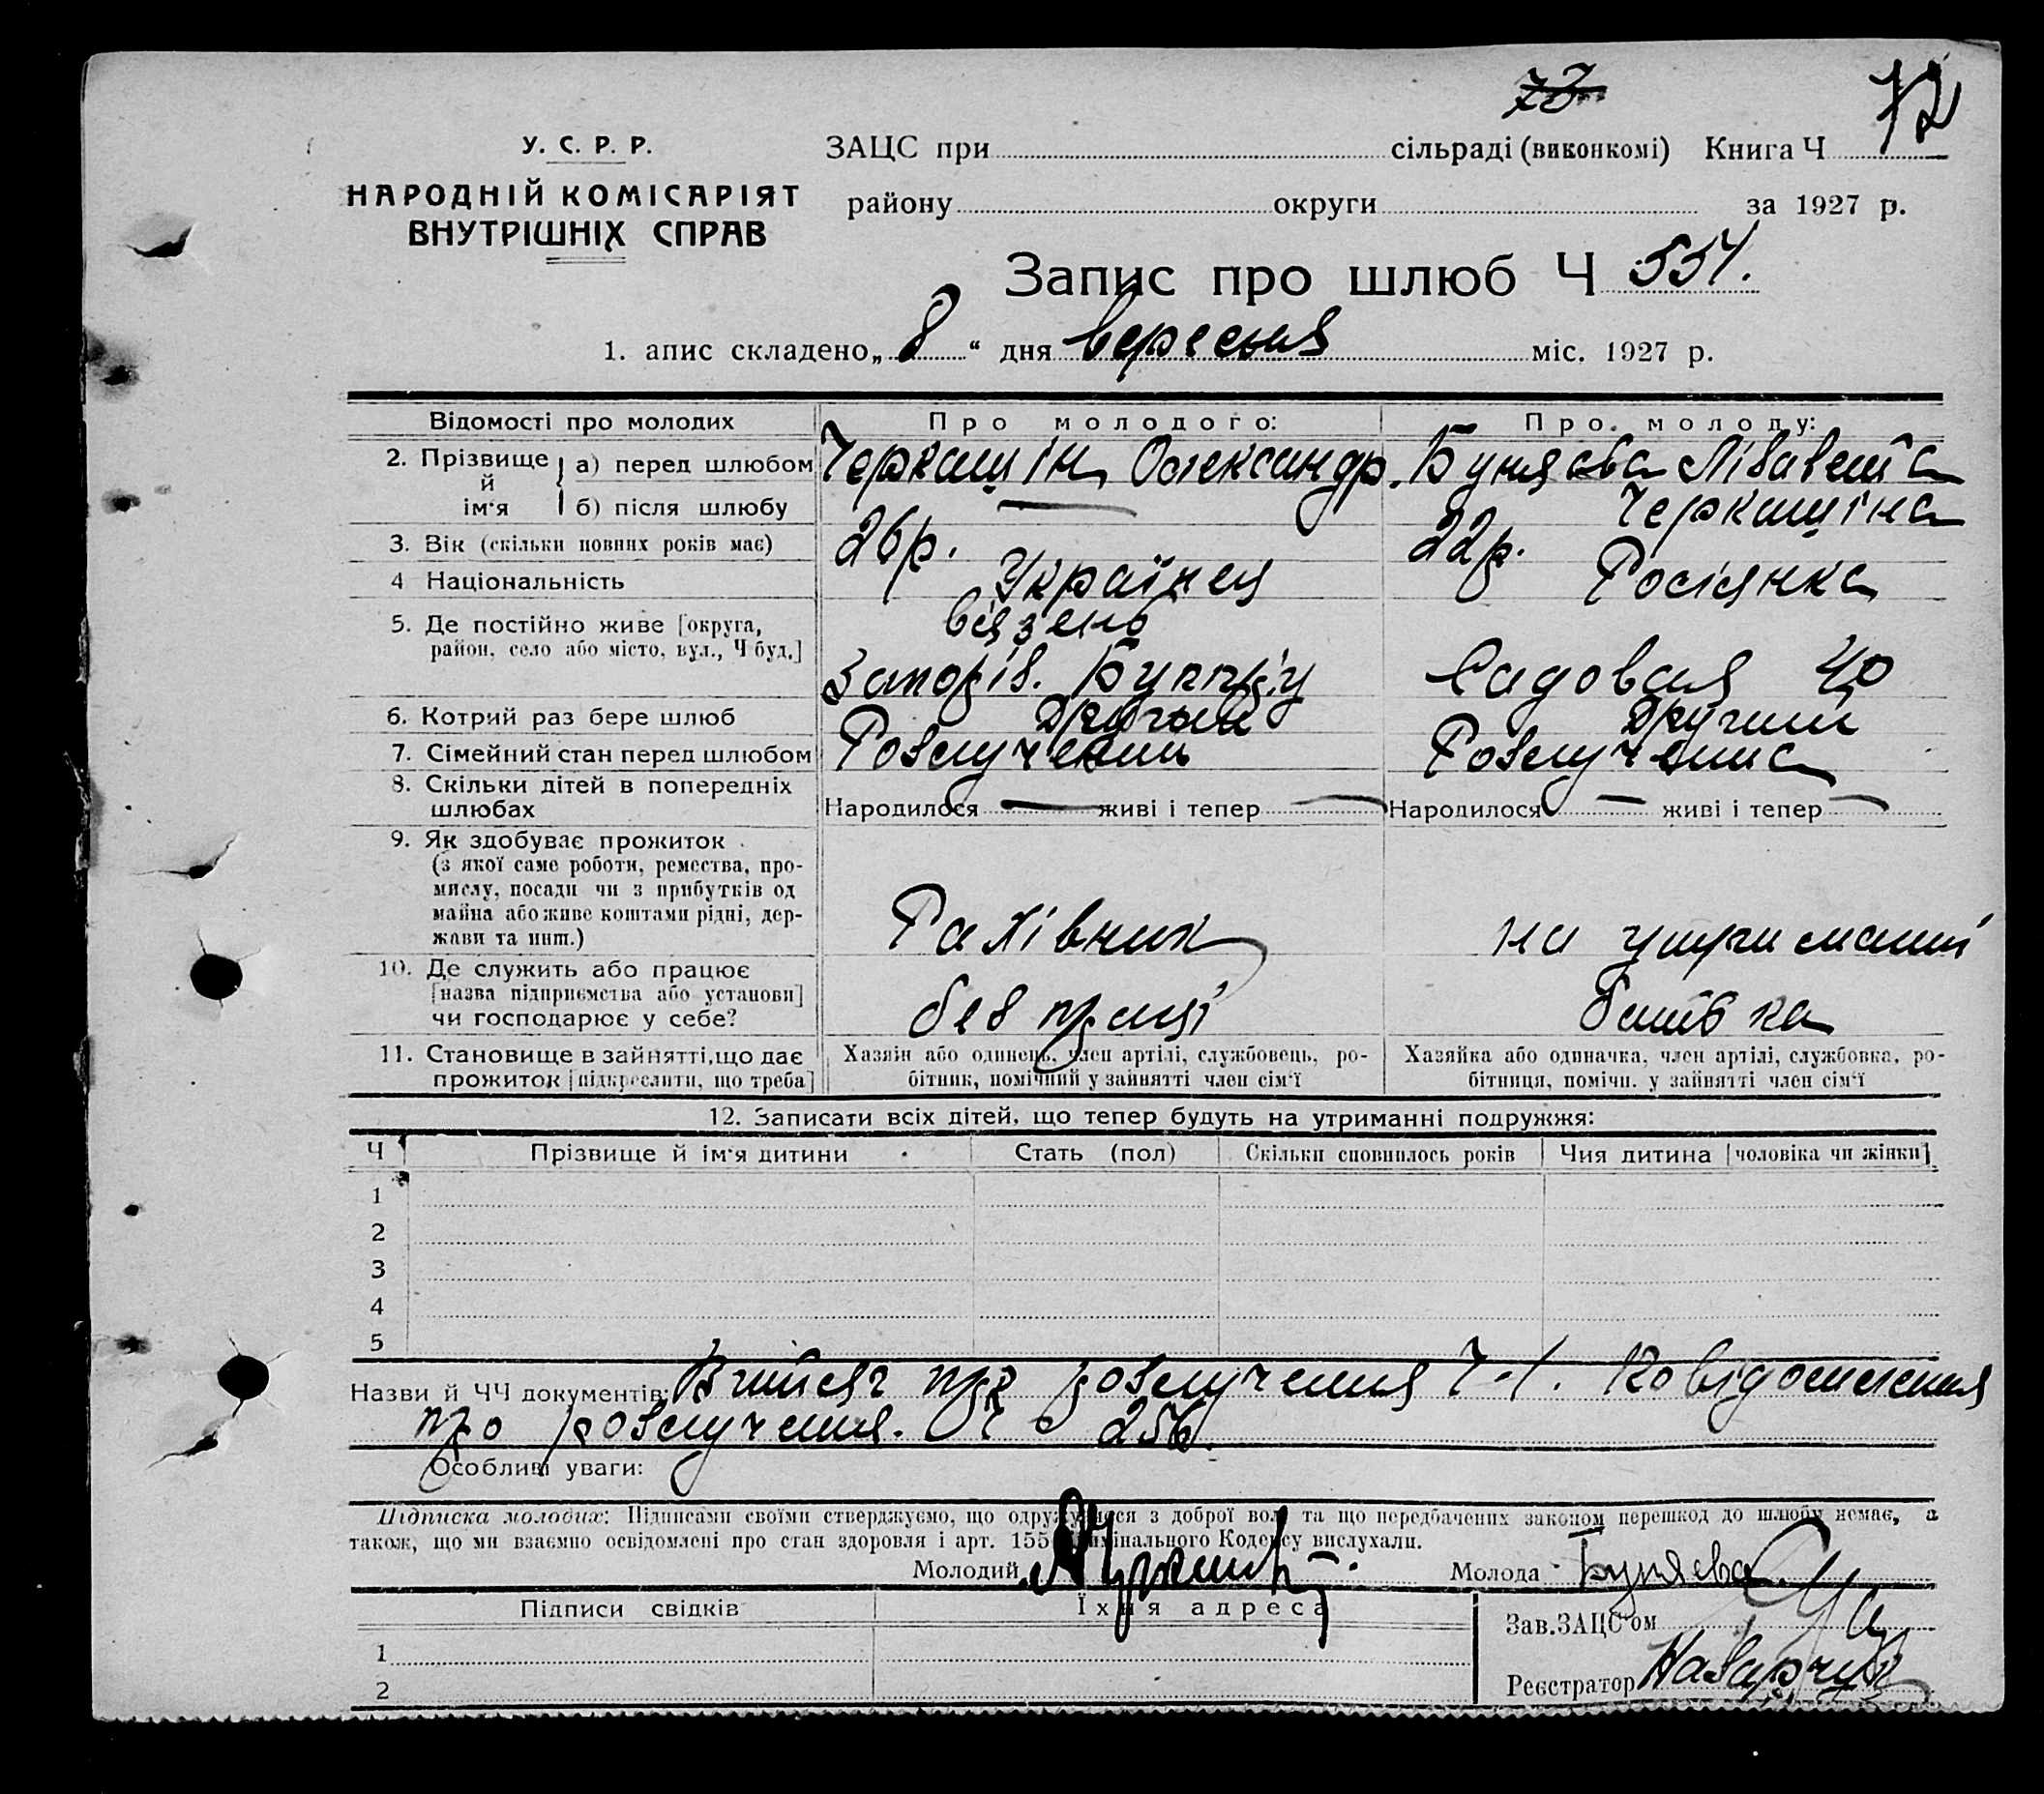 73
12
У. С. Р. Р.
НАРОДНІЙ КОМІСАРІЯТ
ВНУТРІШНІХ СПРАВ
ЗАЦС при сільраді (виконкомі) Книга Ч
району округи за 1927 р.
Запис про шлюб Ч 557.
1. апис складено „ 8 “ дня вересня міс. 1927 р.
Відомості про молодих Про молодого: Про молоду:
2. Прізвище й ім'я а) перед шлюбом Черкашін Олександр. Буняєва Лізавета
б) після шлюбу — Черкашіна
3. Вік (скільки повних років має) 26 р. 22 р.
4 Національність Українец Росіянка
5. Де постійно живе [округа, район, село або місто, вул., Ч буд.] вязень
Запоріз. Садовая 40
6. Котрий раз бере шлюб Другий Другий
7. Сімейний стан перед шлюбом Розлучений Розлучена
8. Скільки дітей в попередніх шлюбах Народилося — живі і тепер — Народилося — живі і тепер —
9. Як здобуває прожиток
(з якої саме роботи, ремества, про-
мислу, посади чи з прибутків од
майна або живе коштами рідні, дер-
жави та инш.) Рахівник на утриманні
10. Де служить або працює
[назва підприємства або установи]
чи господарює у себе? без праці батька
11. Становище в зайнятті, що дає Хазяїн або одинець, член артілі, службовець, ро- Хазяйка або одиначка, член артілі, службовка, ро-
прожиток [підкреслити, що треба] бітник, помічний у зайнятті член сім'ї бітниця, помічн. у зайнятті член сім'ї
12. Записати всіх дітей, що тепер будуть на утриманні подружжя:
Ч Прізвище й ім'я дитини Стать (пол) Скільки сповнилось років Чия дитина [чоловіка чи жінки]
1
2
3
4
5
Назви й ЧЧ документів: Витяг про розлучення Ч-1. Повідомлення
про розлучення. Ч 256.
Особливі уваги:
Підписка молодих: Підписами своїми стверджуємо, що одружуємося з доброї волі та що передбачених законом перешкод до шлюбу немає, а
також, що ми взаємно освідомлені про стан здоровля і арт. 155 Кримінального Кодексу вислухали.
Молодий Молода Буняєва
Підписи свідків Їхня адреса
Зав. ЗАЦС'ом
1
Реєстратор
2